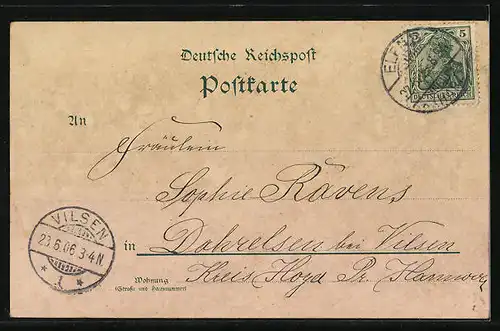 Deutsche Reichspost
Postkarte
5
An
Fräulein
Sophie Rävens
VILSEN
23.6.06 3-4N
* 1 *
in Dohrelsen bei Vilsen
Wohnung
(Straße und Hausnummer)
Kreis Hoya Pr. Hannover